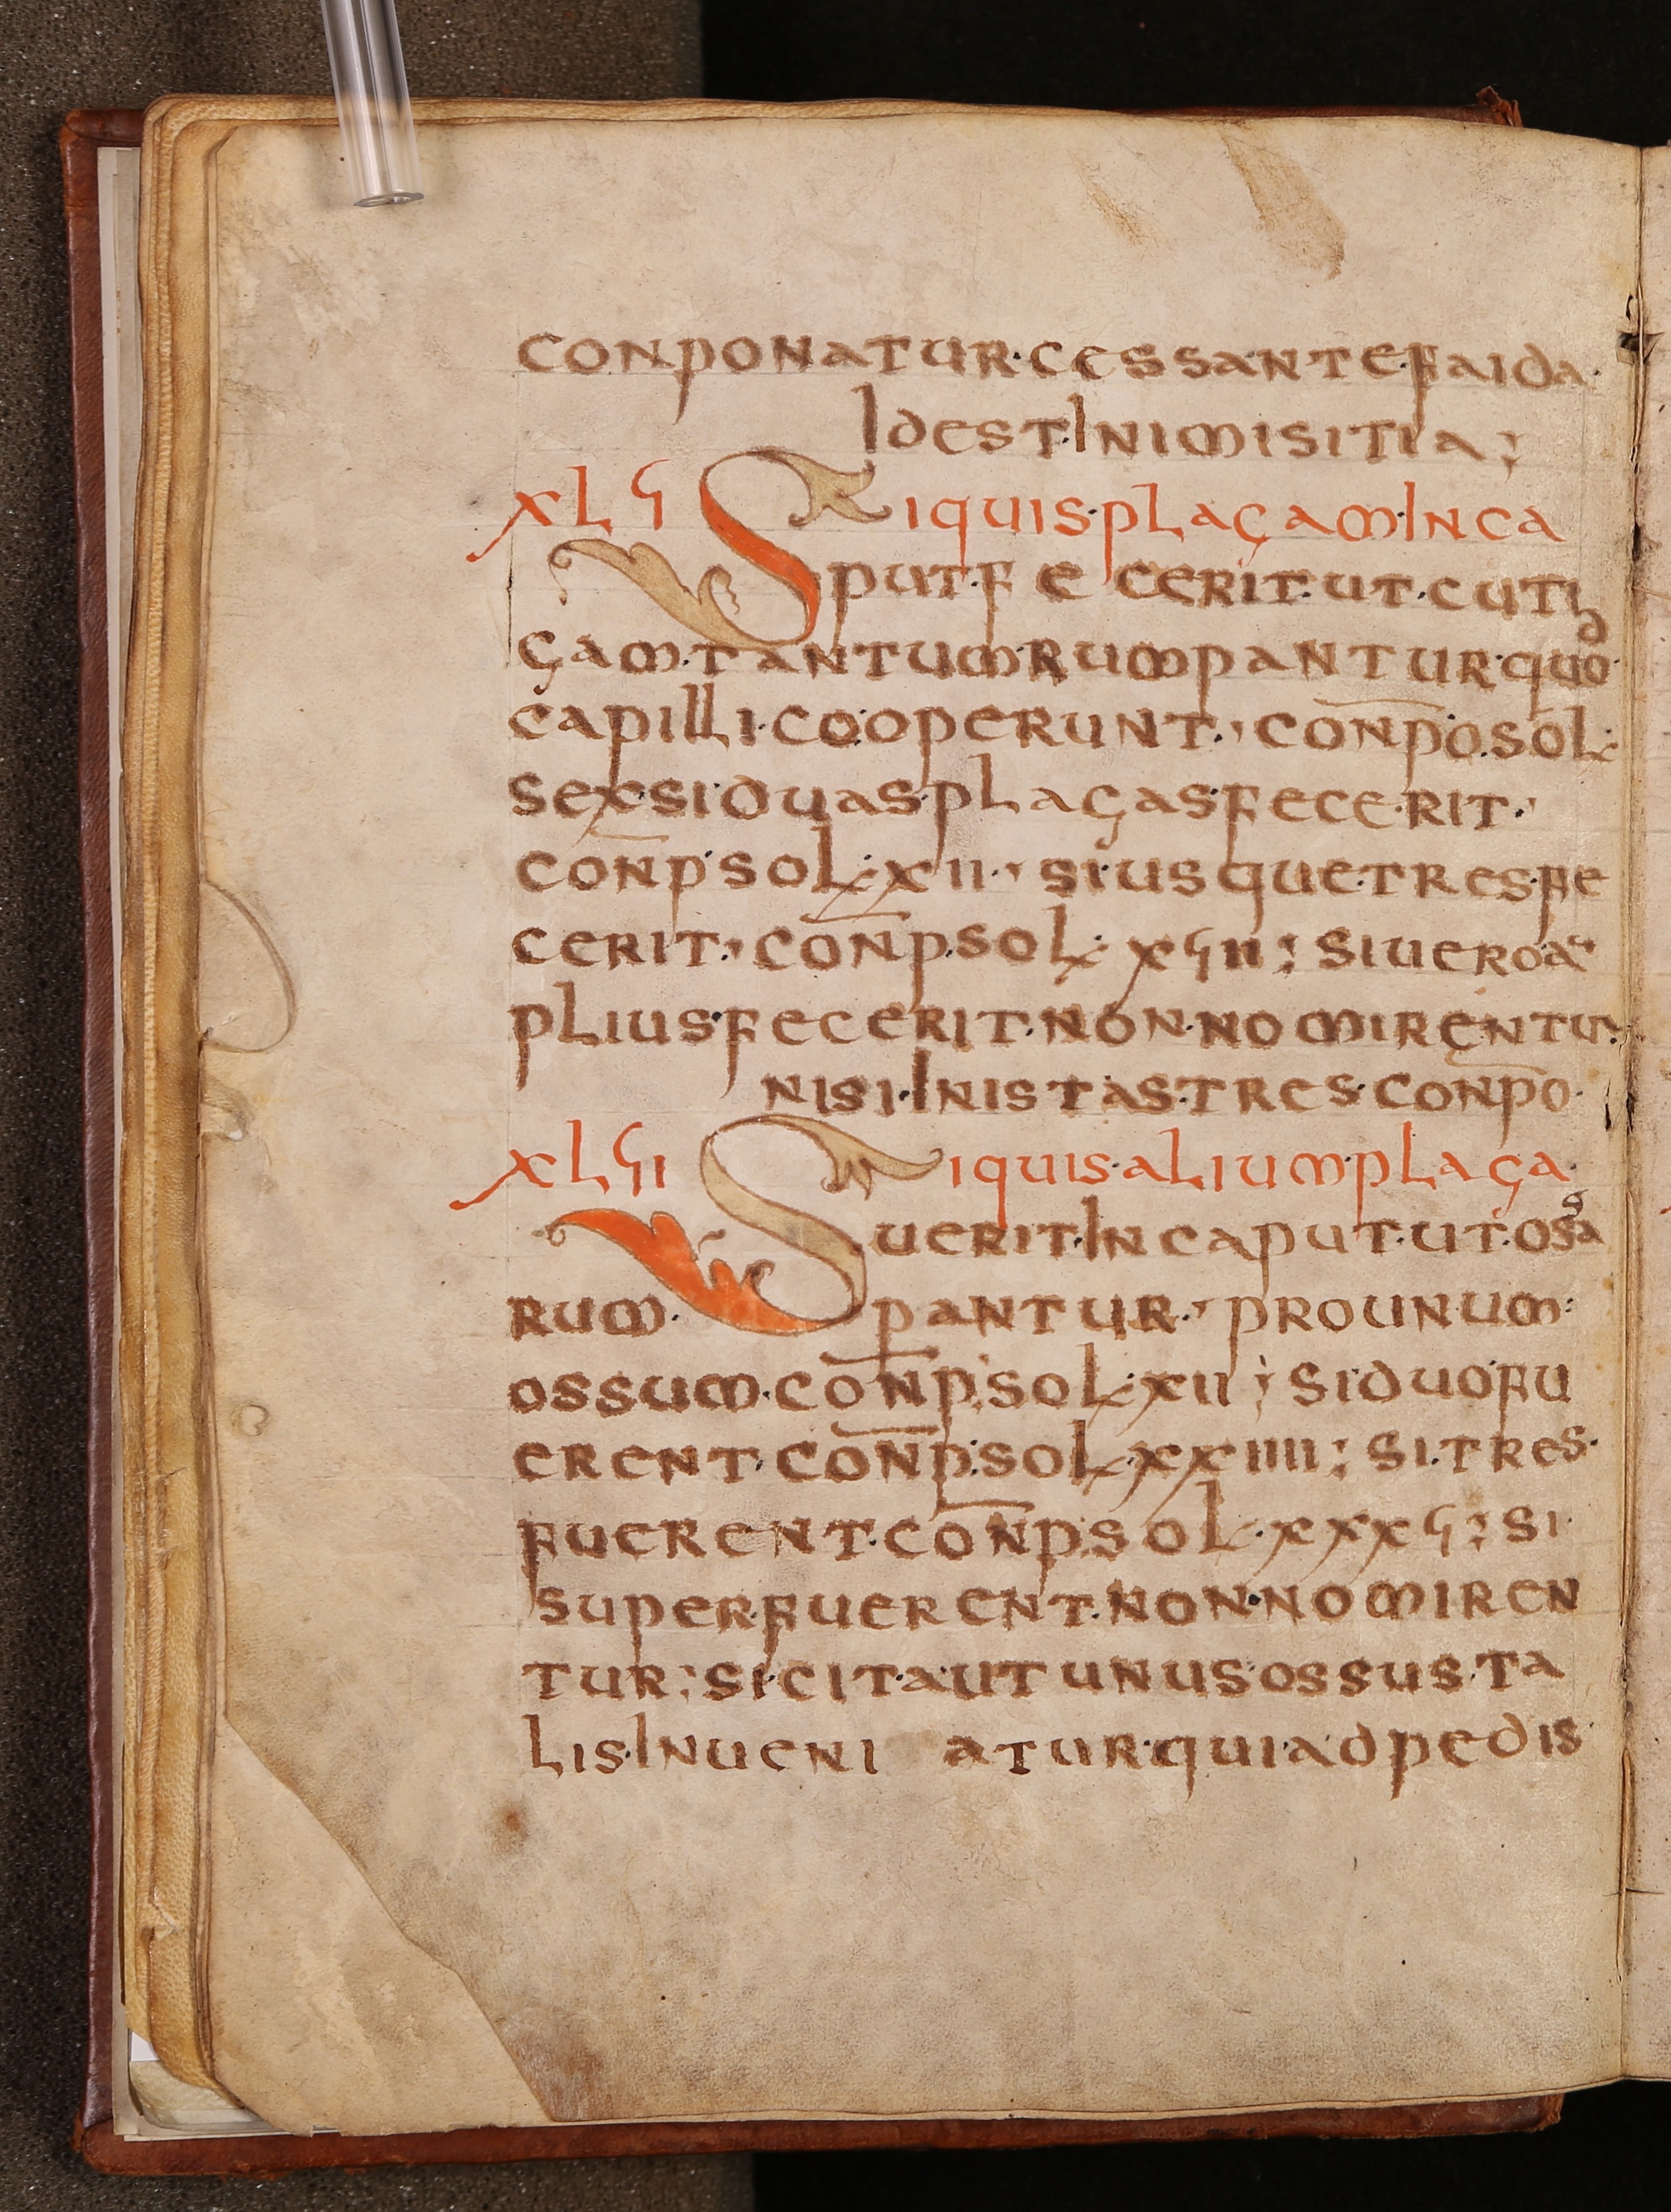 conponatur·cessante·faida·
Idest·Inimisitia;
xlϛ Siquis·plaçam·Inca
put·fecerit·ut·cuti
çam·tantum·rumpantur·quod·
capilli·cooperunt·, con̅po·sol·
sex·si·duas·plaças·fecerit·,
con̅p·sol·xii·, si·usque·tres·fe
cerit·, con̅p·sol· xϛii; si uero a
plius·fecerit·non·nomirentur·
nisi·In istas·tres·con̅po·
xlϛi Siquis·alium·plaça·
uerit·In caput·ut·ossa
rum·pantur·, pro unum·
ossum·con̅p·sol·xii; si duo fu
erent·con̅p·sol·xxiiii; si·tres·
fuerent·con̅p·sol·xxxϛ; si·
super·fuerent·non·nomiren
tur; sic ita·ut unus·ossus·ta
lis·Inueniatur·qui·ad pedis·